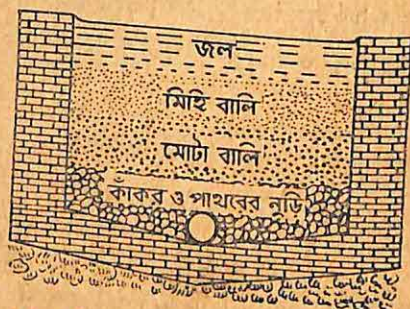 জল
মিহি বালি
মোটা বালি
কাঁকর ও পাথরের নুড়ি